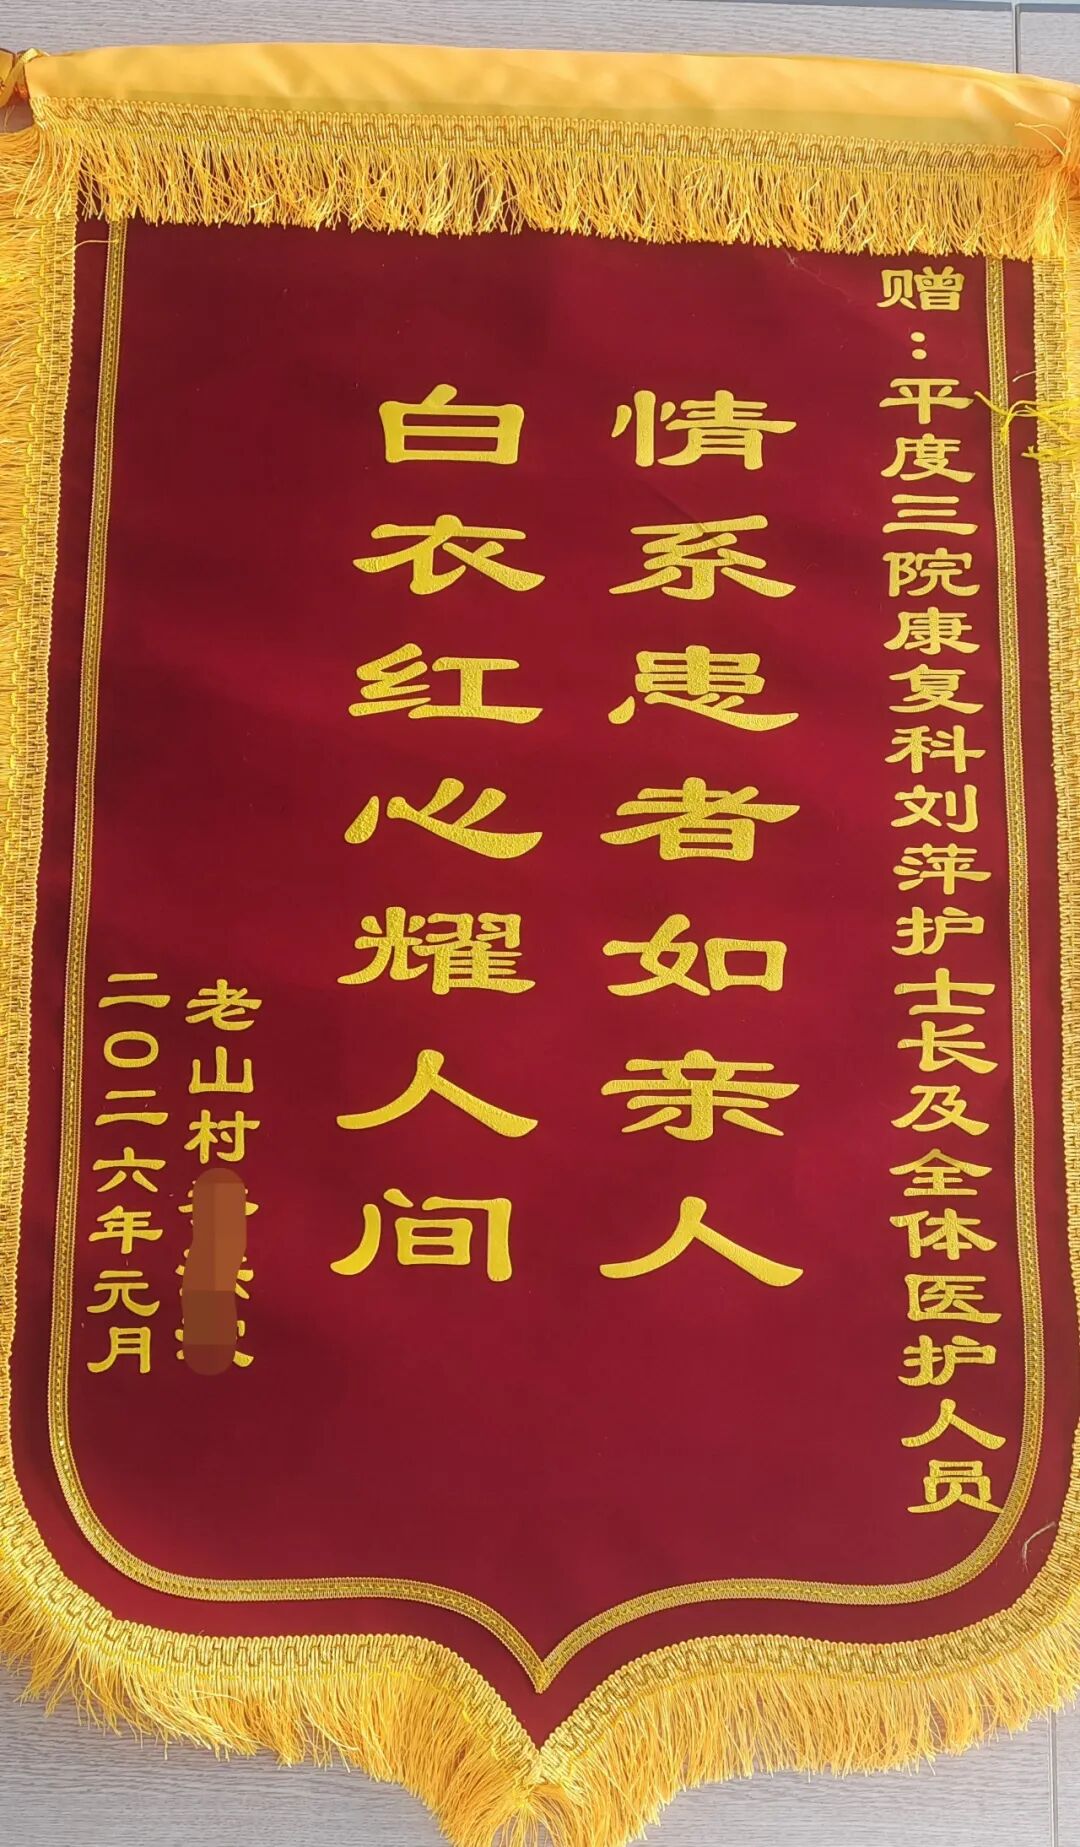 赠：平度三院康复科刘萍护士长及全体医护人员
情系患者如亲人
白衣红心耀人间
老山村
二〇二六年元月